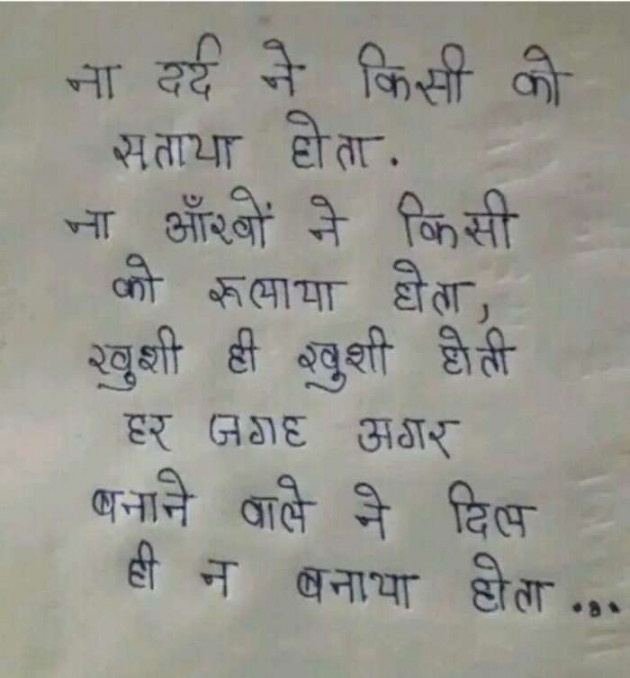 ना दर्द ने किसी को
सताया होता.
ना आँखों ने किसी
को रूलाया होता,
खुशी ही खुशी होती
हर जगह अगर
बनाने वाले ने दिल
ही न बनाया होता...